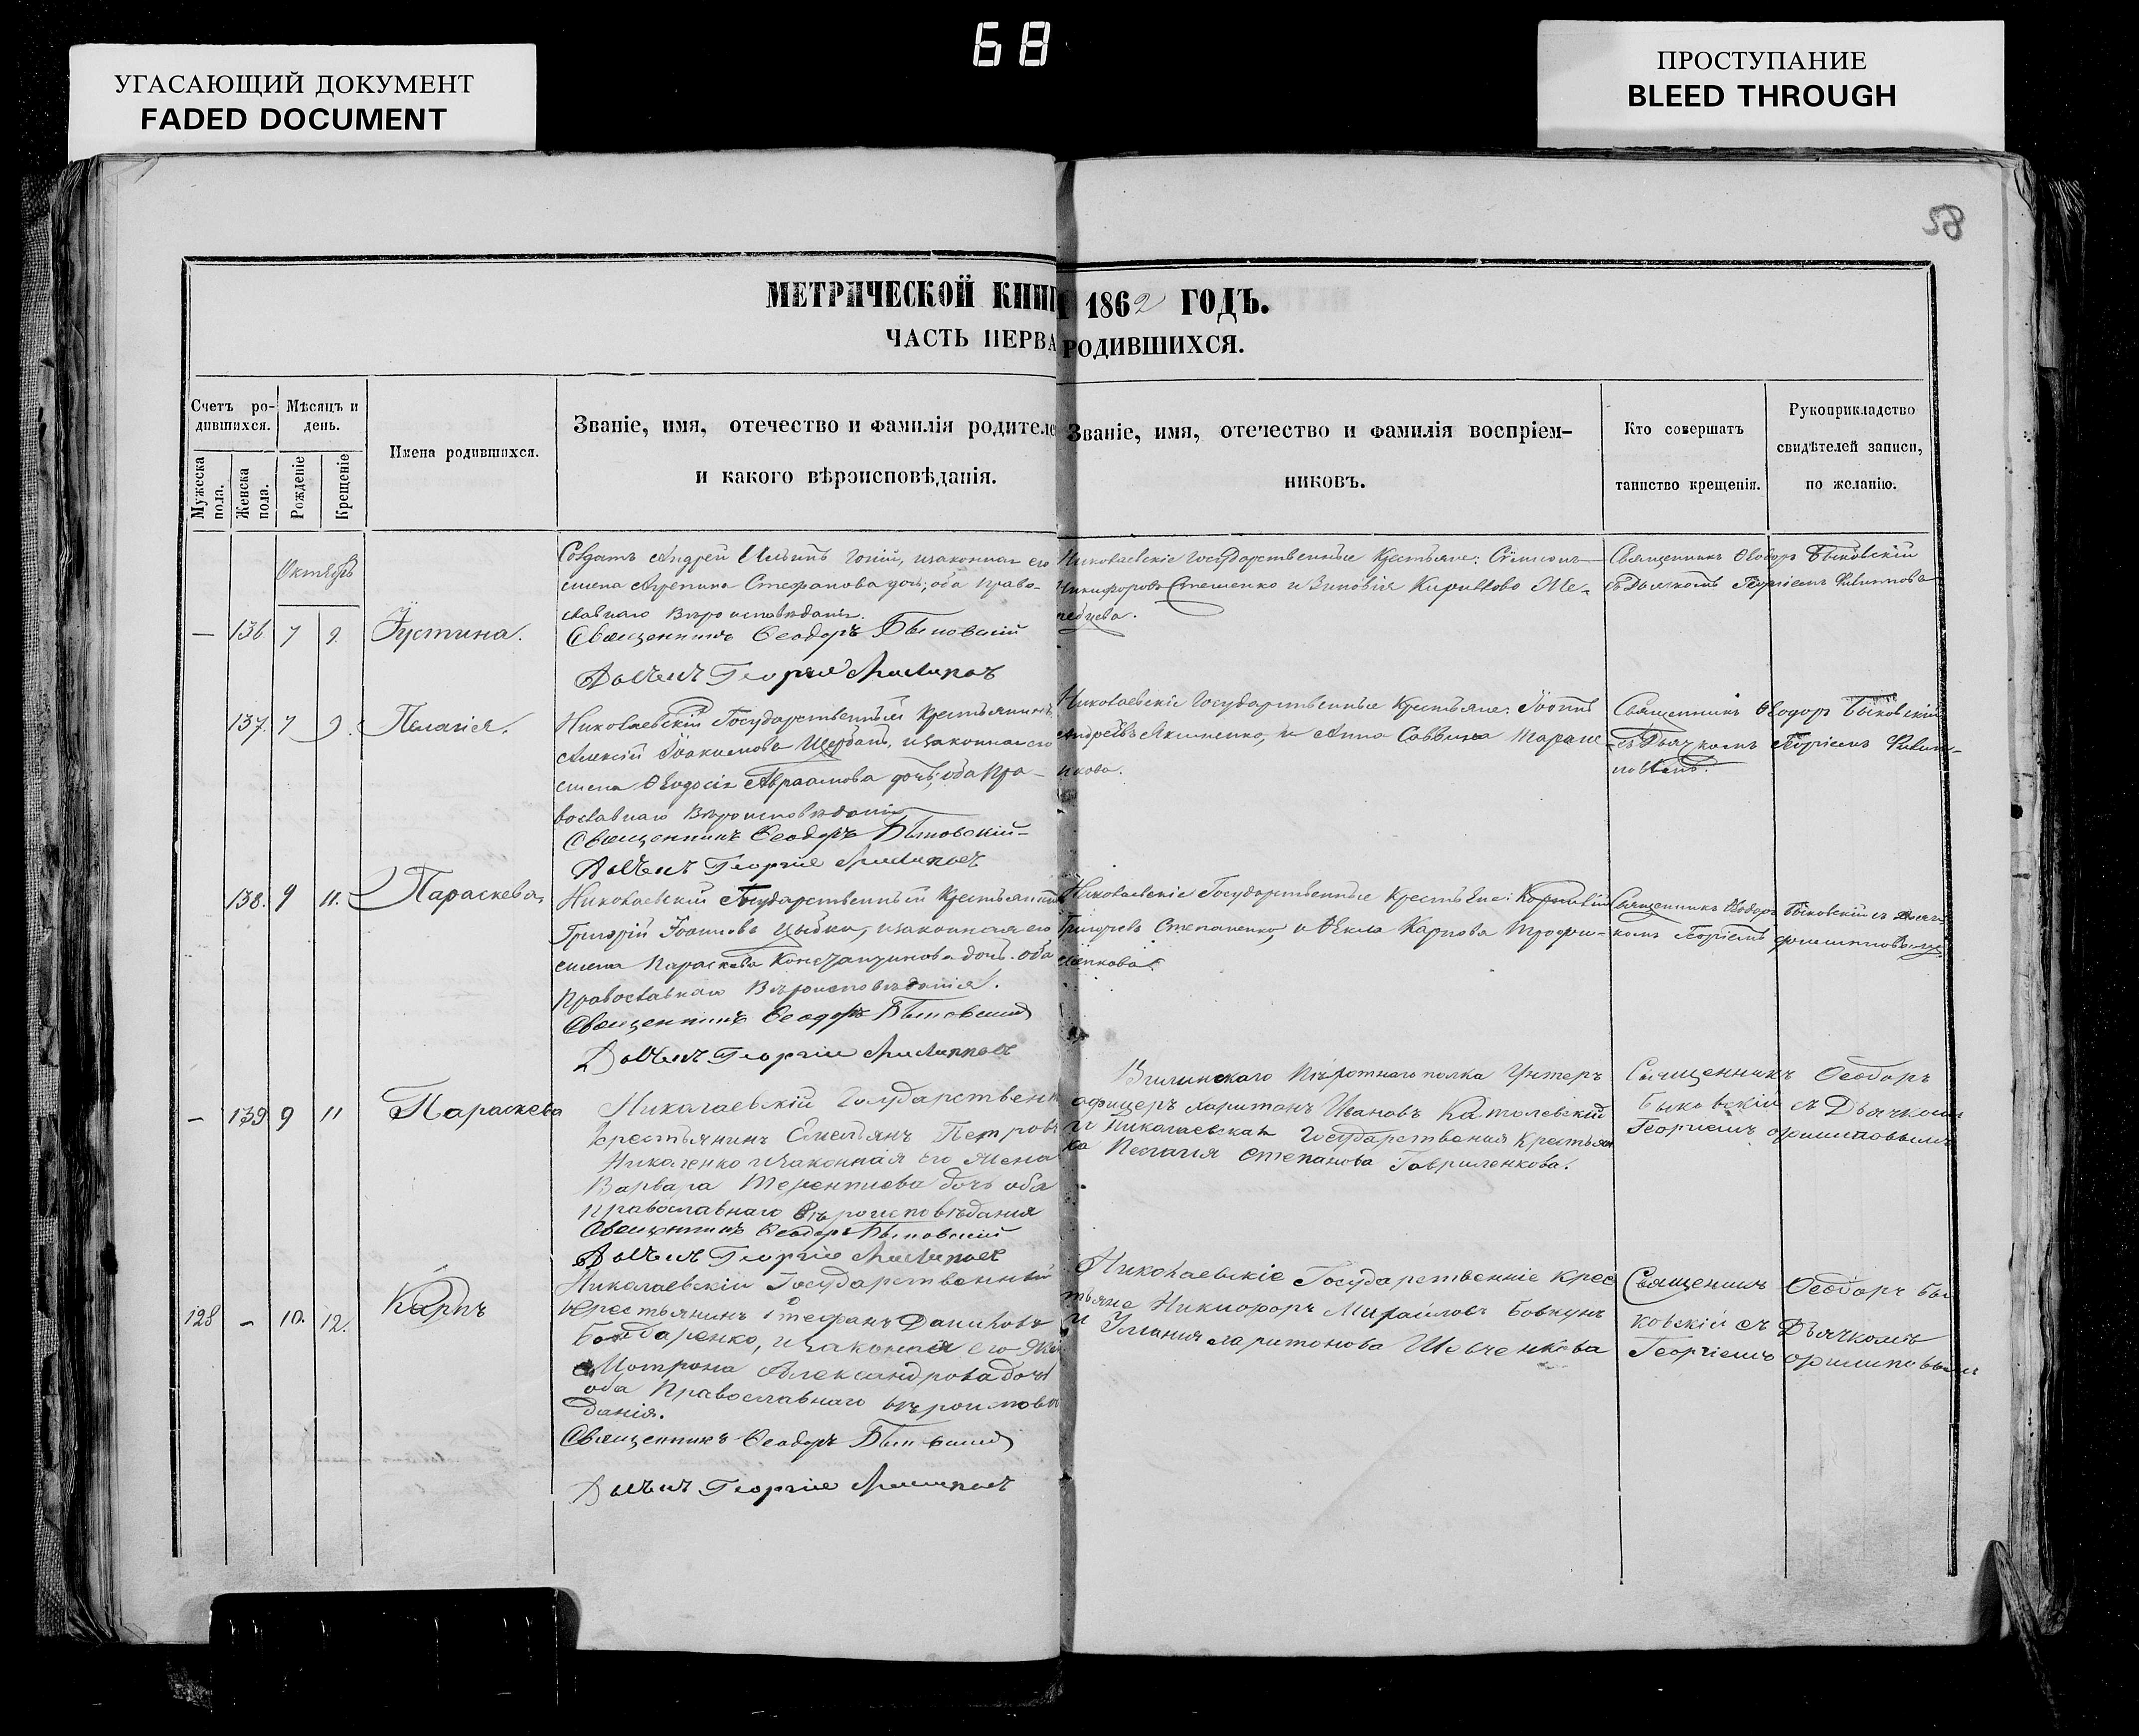 68
УГАСАЮЩИЙ ДОКУМЕНТ
FADED DOCUMENT
ПРОСТУПАНИЕ
BLEED THROUGH
58
МЕТРИЧЕСКОЙ КНИГ
И 1862 ГОДЪ.
ЧАСТЬ ПЕРВА
РОДИВШИХСЯ.
Счетъ ро-
дившихся.
Мужеска пола.
Женска пола.
Мѣсяцъ и
день.
Рожденіе
Крещеніе
Имена родившихся.
Званіе, имя, отечество и фамилія родителе
и какого вѣроисповѣданія.
Званіе, имя, отечество и фамилія воспріем-
никовъ.
Кто совершатъ
таинство крещенія.
Рукоприкладство
свидѣтелей записи,
по желанію.
Октябрь
— 136 7 9 Іустина.
Солдатъ Андрей Ильинъ изаконная его
жена Агрепина Стефанова дочь, оба право-
славнаго Вѣроисповѣданія.
Священникъ Ѳеодоръ Быковскій
Дьячекъ Георгій Филиповъ
Николаевскіе Государственные Крестьяне: Сѵмеонъ
Никифоровъ Стешенко и Зиновія Кирилова
Священникъ Ѳеодоръ Быковскій
съ Дьячкомъ Георгіемъ
137. 7 9. Пелагія.
Николаевскій Государственный Крестьянинъ
Алексій Іоакимовъ Щербань, изаконная его
жена Ѳеодосія Авраамова дочь, оба Пра-
вославнаго Вѣроисповѣданія
Священникъ Ѳеодоръ Быковскій
Дьячекъ Георгій Филиповъ
Николаевскіе Государственные Крестьяне: Іоаннъ
Андреевъ Якименко, и Анна Саввина
нкова.
Священникъ Ѳеодоръ Быковскій
съ Дьячкомъ Георгіемъ Филип-
повымъ.
138. 9 11. Параскева,
Николаевскій Государственный Крестьянинъ
Григорій Іоанновъ Цыбко, изаконная его
жена Параскева Константинова дочь. оба
Православнаго Вѣроисповѣданія.
Священникъ Ѳеодоръ Быковскій
Дьячекъ Георгій Филиповъ
Николаевскіе Государственные Крестьяне: Корнилій
Григорьевъ Степаненко, и Ѳекла Карпова Трофи-
менкова.
Священникъ Ѳеодоръ Быковскій съ Дьяч-
комъ Георгіемъ Филиповымъ
— 139 9 11 Параскева
Николаевскій Государствен
Крестьянинъ Емельянъ Петровъ
Никаченко изаконная его жена
Варвара Терентиева дочь оба
православнаго вѣроисповѣданія
Священникъ Ѳеодоръ Быковскій
Дьячекъ Георгій Филиповъ
пѣхотнаго полка Унтеръ
офицеръ Харитонъ Ивановъ
и Николаевская Государственая Крестьян
ка Пелагія Степанова Гавриленкова.
Священникъ Ѳеодоръ
Быковскій съ Дьячкомъ
Георгіемъ Филиповымъ
128 — 10. 12. Карпъ
Николаевскій Государственный
Крестьянинъ Стефанъ Даниловъ
Бондаренко, изаконная его жен
а Мотрона Александрова дочь
оба Православнаго вѣроисповѣ
данія.
Священникъ Ѳеодоръ Быковскій
Дьячекъ Георгій Филиповъ
Николаевскіе Государственніе Крес
тьяне Никифоръ Михайловъ Бовкунъ
и Уліанія Харитонова Шевченкова
Священникъ Ѳеодоръ Бы
ковскій съ Дьячкомъ
Георгіемъ Филиповымъ